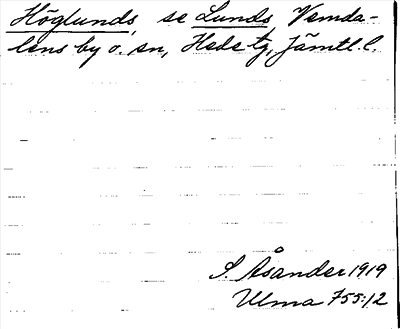 Höglunds, se Lunds, Vemda-
lens by o. sn, Hede tg, Jämtl. l.
S. Åsander 1919
Ulma 755:12